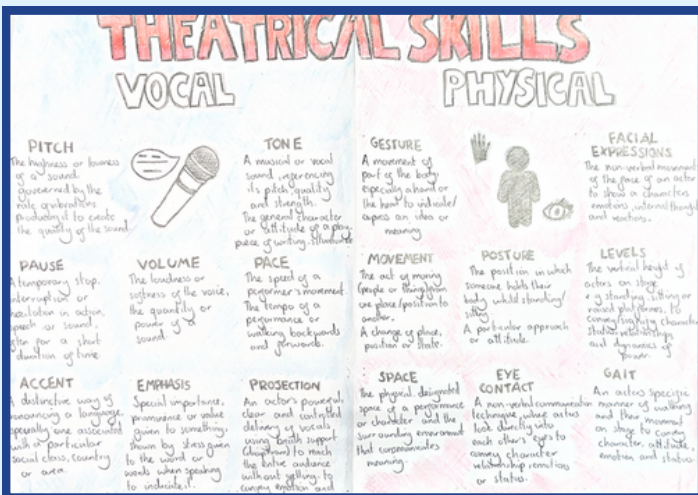 THEATRICAL SKILLS
VOCAL
PITCH
The highness or lowness
of a sound
governed by the
rate of vibrations
producing it to create
the quality of the sound
TONE
A musical or vocal
sound, referencing
its pitch, quality
and strength.
The general character
or attitude of a play,
piece of writing,
PAUSE
A temporary stop,
interruption or
hesitation in action,
speech or sound,
often for a short
duration of time.
VOLUME
The loudness or
softness of the voice,
the quantity or
power of a
sound.
PACE
The speed of a
performer's movement.
The tempo of a
performance or
walking backwards
and forwards.
ACCENT
A distinctive way of
pronouncing a language,
especially one associated
with a particular
social class, country
or area.
EMPHASIS
Special importance,
prominence or value
given to something,
shown by stress given
to the word or
words when speaking
to indicate it.
PROJECTION
An actor's powerful,
clear and controlled
delivery of vocals,
using breath support
(diaphragm) to reach
the entire audience
without yelling, to
convey emotion and
PHYSICAL
GESTURE
A movement of
part of the body,
especially a hand or
the head to indicate/
express an idea or
meaning
FACIAL
EXPRESSIONS
The non-verbal movement
of the face of an actor
to show a characters
emotions, internal thought
and reactions.
MOVEMENT
The act of moving
(people or things) from
one place/position to
another.
A change of place,
position or state.
POSTURE
The position in which
someone holds their
body whilst standing/
sitting.
A particular approach
or attitude.
LEVELS
The vertical height of
actors on stage
e.g standing, sitting or
raised platforms, to
convey/signify character
status, relationships
and dynamics of
power.
SPACE
The physical, designated
space of a performance
or character and the
surrounding environment
that communicates
meaning.
EYE
CONTACT
A non-verbal communication
technique, where actors
look directly into
each other's eyes to
convey character
relationship, emotions
or status.
GAIT
An actors specific
manner of walking
and their movement
on stage to convey
character, attitude,
emotion and status.